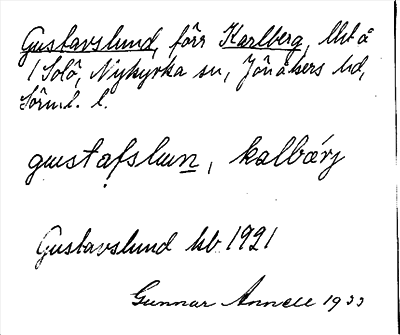 Gustavslund, förr Karlberg, lht å
1 Solö, Nykyrka sn, Jönåkers hd,
Sörml. l.
gustafslun, kalbärj
Gustavslund hb. 1921
Gunnar Annell 1933